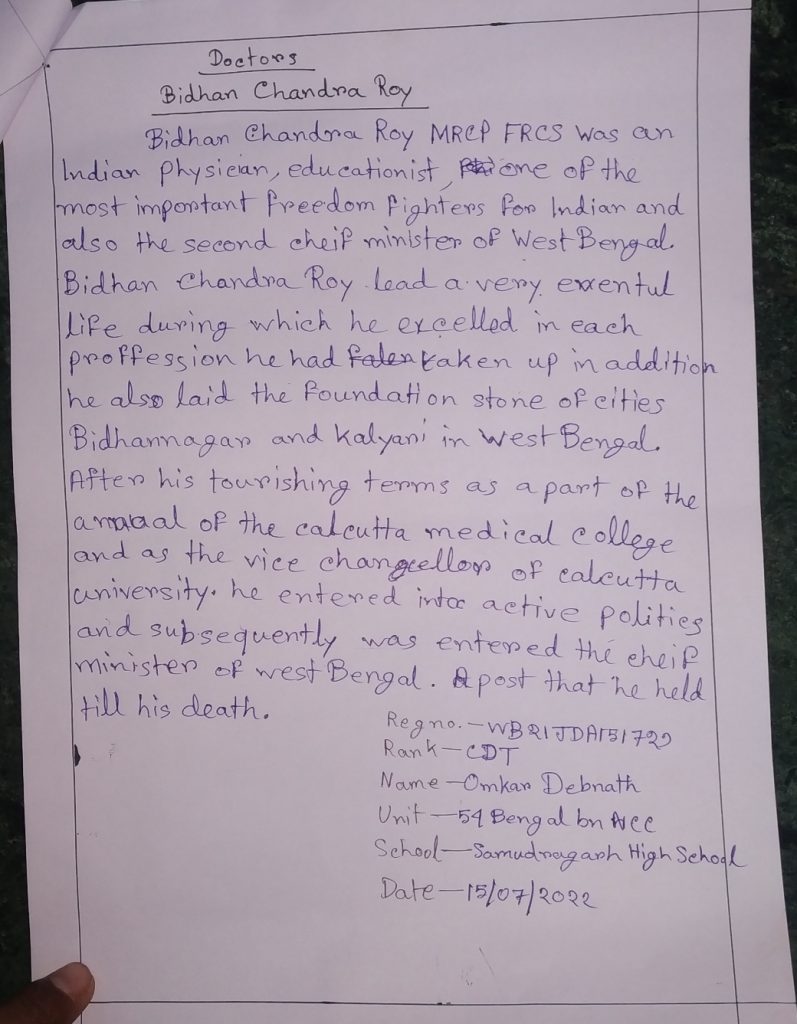 Doctors
Bidhan Chandra Roy
Bidhan Chandra Roy MRCP FRCS was an
Indian physician, educationist, one of the
most important freedom fighters for Indian and
also the second cheif minister of West Bengal.
Bidhan Chandra Roy lead a very
life during which he excelled in each
proffession he had taken up in addition
he also laid the foundation stone of cities
Bidhannagar and Kalyani in West Bengal.
After his tourishing terms as a part of the
of the calcutta medical college
and as the vice of calcutta
university. he entered into active politics
and subsequently was entered the cheif
minister of west Bengal. A post that he held
till his death.
Reg no. - WB21JDA151722
Rank - CDT
Name - Omkar Debnath
Unit - 54 Bengal bn NCC
School - Samudragarh High School
Date - 15/07/2022